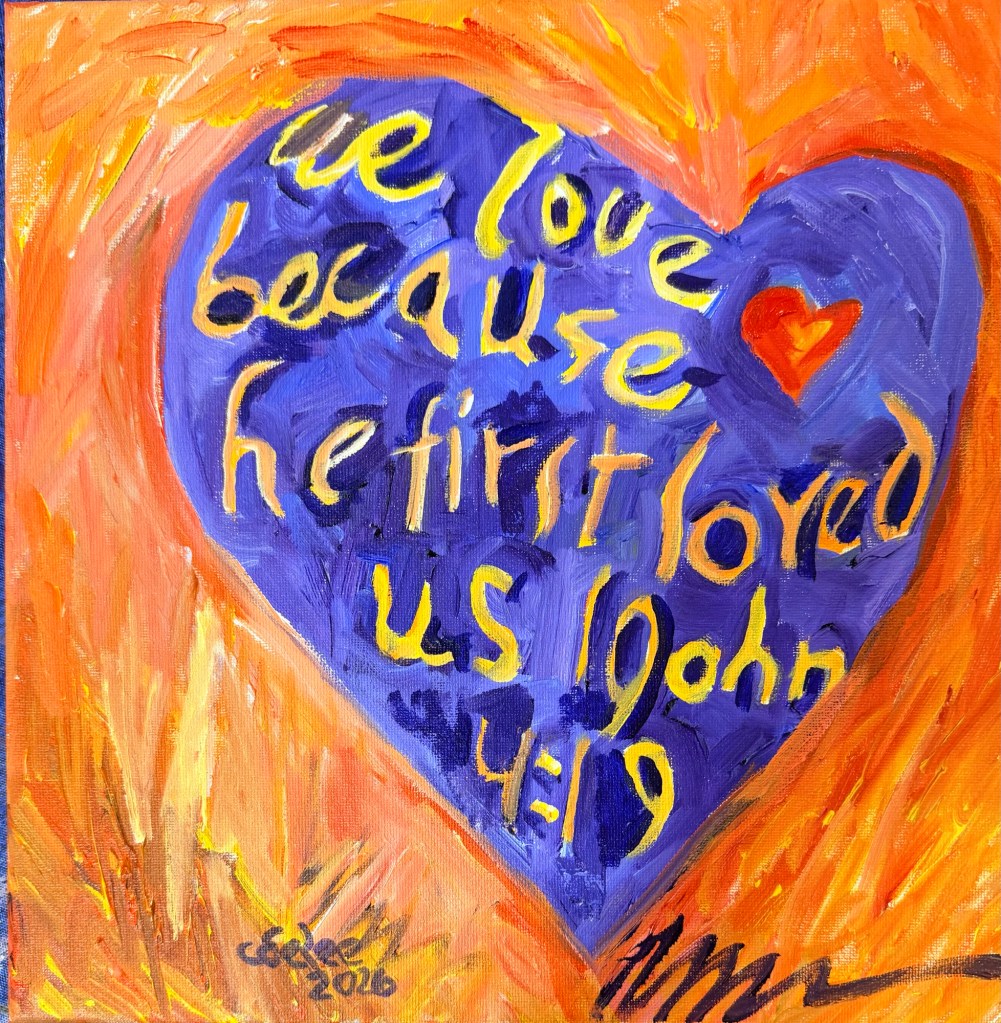 we love
because
he first loved
us 1 John
4:19
2026